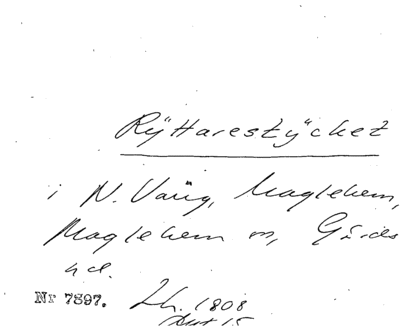 Rÿttarestÿcket
i N. Vång, Maglehem,
Maglehem sn, Gärds
hd.
Nr 7397. Lh. 1808
Akt 15